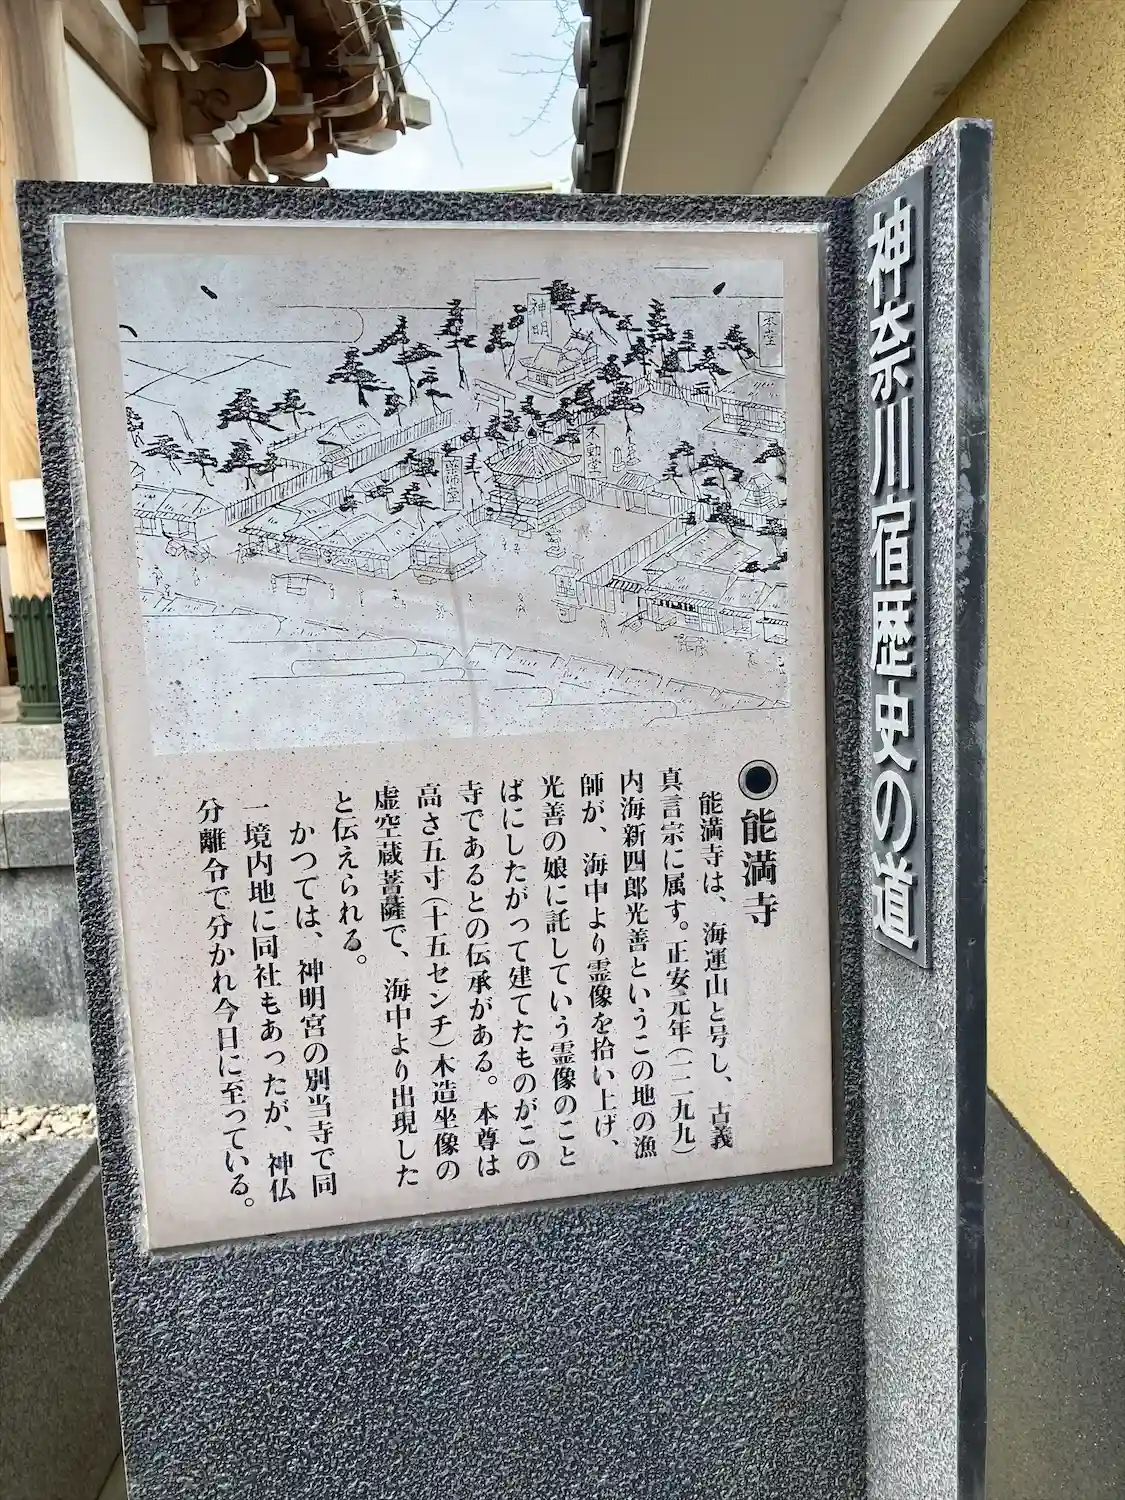 神奈川宿歴史の道
神明
不動堂
能満寺
能満寺は、海運山と号し、古義
真言宗に属す。正安元年(一二九九)
内海新四郎光善というこの地の漁
師が、海中より霊像を拾い上げ、
光善の娘に託していう霊像のこと
ばにしたがって建てたものがこの
寺であるとの伝承がある。本尊は
高さ五寸(十五センチ)木造坐像の
虚空蔵菩薩で、海中より出現した
と伝えられる。
かつては、神明宮の別当寺で同
一境内地に同社もあったが、神仏
分離令で分かれ今日に至っている。